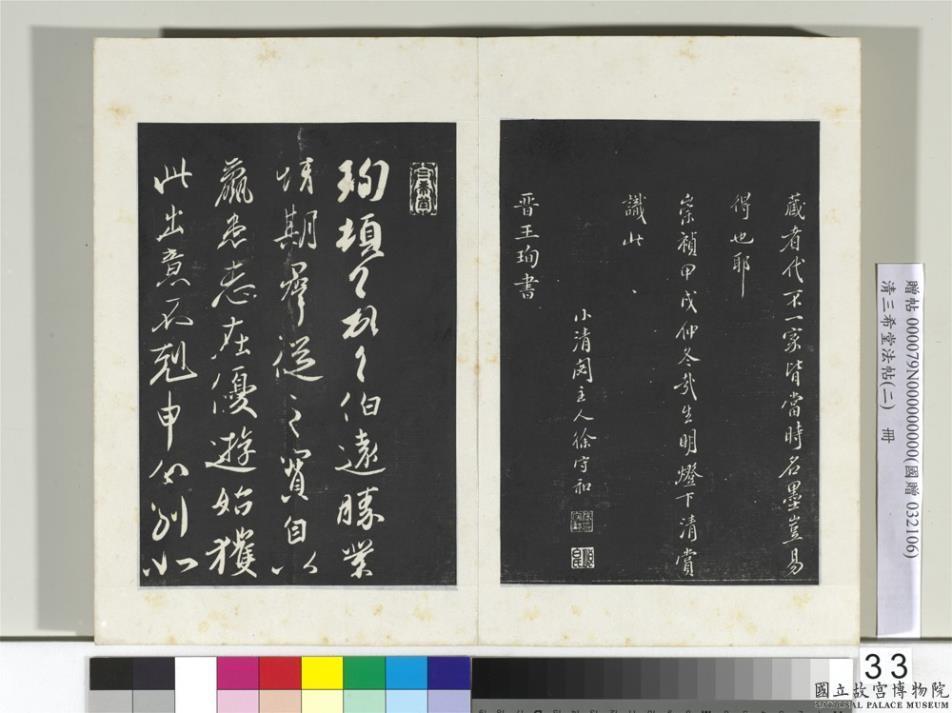 藏者代不一家皆當時名墨豈易
得也耶
崇禎甲戌仲冬哉生明燈下清賞
識此
小清閟主人徐守和
晋王珣書
珣頓首頓首伯遠勝業
情期羣從之寶自以
羸患志在優遊始獲
此出意不剋申分別如
贈帖 000079N000000000(國贈 032106)
清三希堂法帖(二) 冊
33
國立故宮博物院
NATIONAL PALACE MUSEUM